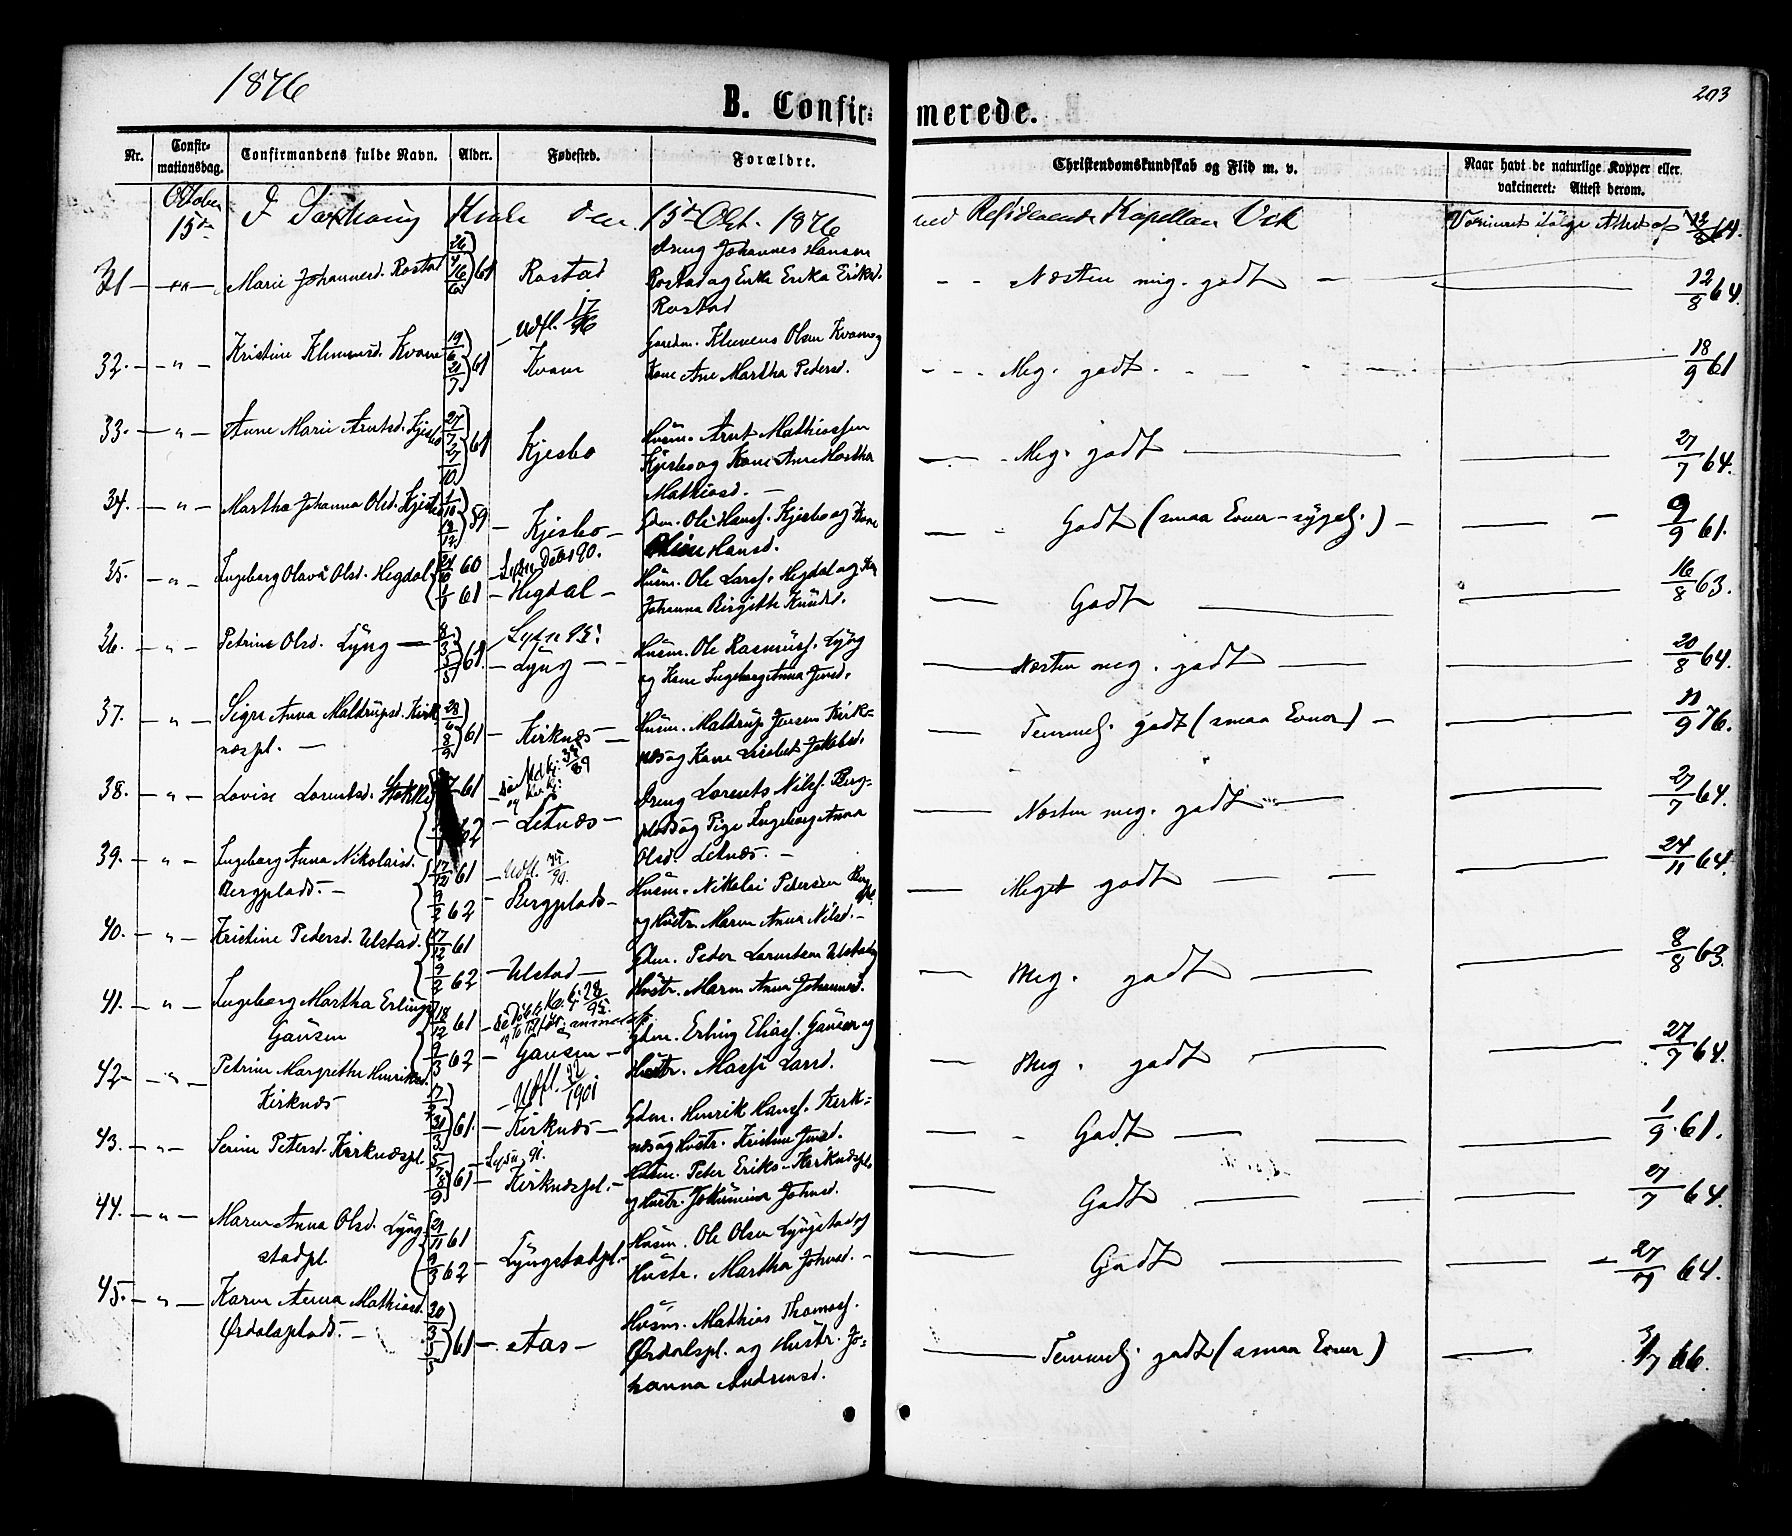 1876
B. Confir-
merede.
203
Nr.
Confir-
mationsdag.
Confirmandens fulde Navn.
Alder.
Fødested.
Forældre.
Christendomskundskab og Flid m. v.
Naar havt de naturlige Kopper eller
vakcineret: Attest derom.
October
15de
I Saxhaug Kirke den 15de Okt. 1876
ved Residerende Kapellan Vek
Vaccineret ifølge Attest af 12/8 64.
31 — "" — Marie Johannesd. Rostad 61 Rostad
Dreng Johannes Hansen
Rostad og Enke Erika Eriksd.
Rostad
- - Næsten mig. godt — 12/8 64.
Udfl. 17/96
32. - " - Kristine Klemensd. Kvam 19/6 21/7 61 Kvam
Gaardm. Klemens Olsen Kvam og
Kone Ane Martha Pedersd.
- - - Meg. godt. 18/9 61
33. — " — Anne Marie Arntsd. Kjesbo 27/7 27/10 61 Kjesbo
Husm. Arnt Mathiassen
Kjesbo og Kone Anne Martha
Mathiasd. —
— — Meg. godt — 27/7 64.
34. — " — Martha Johanna Olsd. Kjesbo 59 — Kjesbo —
Gdm. Ole Hansf. Kjesbo og Kone
Hansd.
— - Godt (smaa Evner - sygelj.) — 9/9 61.
Lysn 90.
35. — " — Ingeborg Olava Olsd. Hegdal 60 61 — Hegdal —
Husm. Ole Larsf. Hegdal og Kone
Johanna Birgitte Knudsd.
— Godt — 16/8 63.
Lysn 95.
36. - " - Petrine Olsd. Lyng — 61 — Lyng —
Husm. Ole Rasmusf. Lyng
og Kone Ingeborg Anna Jensd.
— Næsten meg. godt — 20/8 64.
37. - " - Signe Anna Maldrupsd. Kirk
næspl. — 61 — Kirknæs —
Husm. Maldrup Jensen Kirk-
næs og Kone Lisabet Jakobsd.
— Temmelj. godt (smaa Evner) — 11/9 76.
38. - " - Lovise Lorentsd. 61 62 — Letnæs —
Dreng Lorents Nilsf. Berg-
plads og Pige Ingeborg Anna
Olsd. Letnæs. —
Næsten meg. godt — 27/7 64.
39. — " — Ingeborg Anna Nikolaisd.
Bergplads. — 17/12 61 62 — Bergplads —
Udfl. 90.
Husm. Nikolai Pedersen Berg
og Hustr. Maren Anna Nilsd. —
— Meget godt — 24/11 64.
40. — " — Kristine Pedersd. Ulstad. 17/12 61 62 — Ulstad —
Gdm. Peder Larentsen Ulstad og
Hustr. Maren Anna Johannesd.
— Meg. godt — 8/8 63.
41. — " — Ingeborg Martha Erlingsd.
Gausen 18/12 61 9/3 62 — Gausen —
Gdm. Erling Eliasf. Gausen og
Hustr. Massi Larsd.
— Meg. godt — 27/7 64.
42 - " - Petrine Margrethe Henriksd.
Kirknæs 31/3 61. — Kirknæs —
Udfl. 1901
Gdm. Henrik Hansf. Kirk-
næs og Hustr. Kristine Jensd.
— - Godt — 1/9 61.
43. — " — Serine Petersd. Kirknæspl. 61 — Kirknæspl. —
Lysn. 91.
Husm. Peter Eriks. Kirknæspl.
og Hustr. Johnsd.
— Godt — 27/7 64.
44. — " — Maren Anna Olsd. Lyng-
stadpl. 21/11 61 9/3 62 — Lyngstadpl. —
Husm. Ole Olsen Lyngstad og
Hustr. Martha Johnsd. —
— Godt — 27/7 64.
45. — " — Karen Anna Mathiasd.
Ørdalsplads. — 61 — Aas —
Husm. Mathias Thomasf.
Ørdalspl. og Hustr. Jo-
hanna Andreasd.
— Temmelj godt (smaa Evner) — 3/7 66.